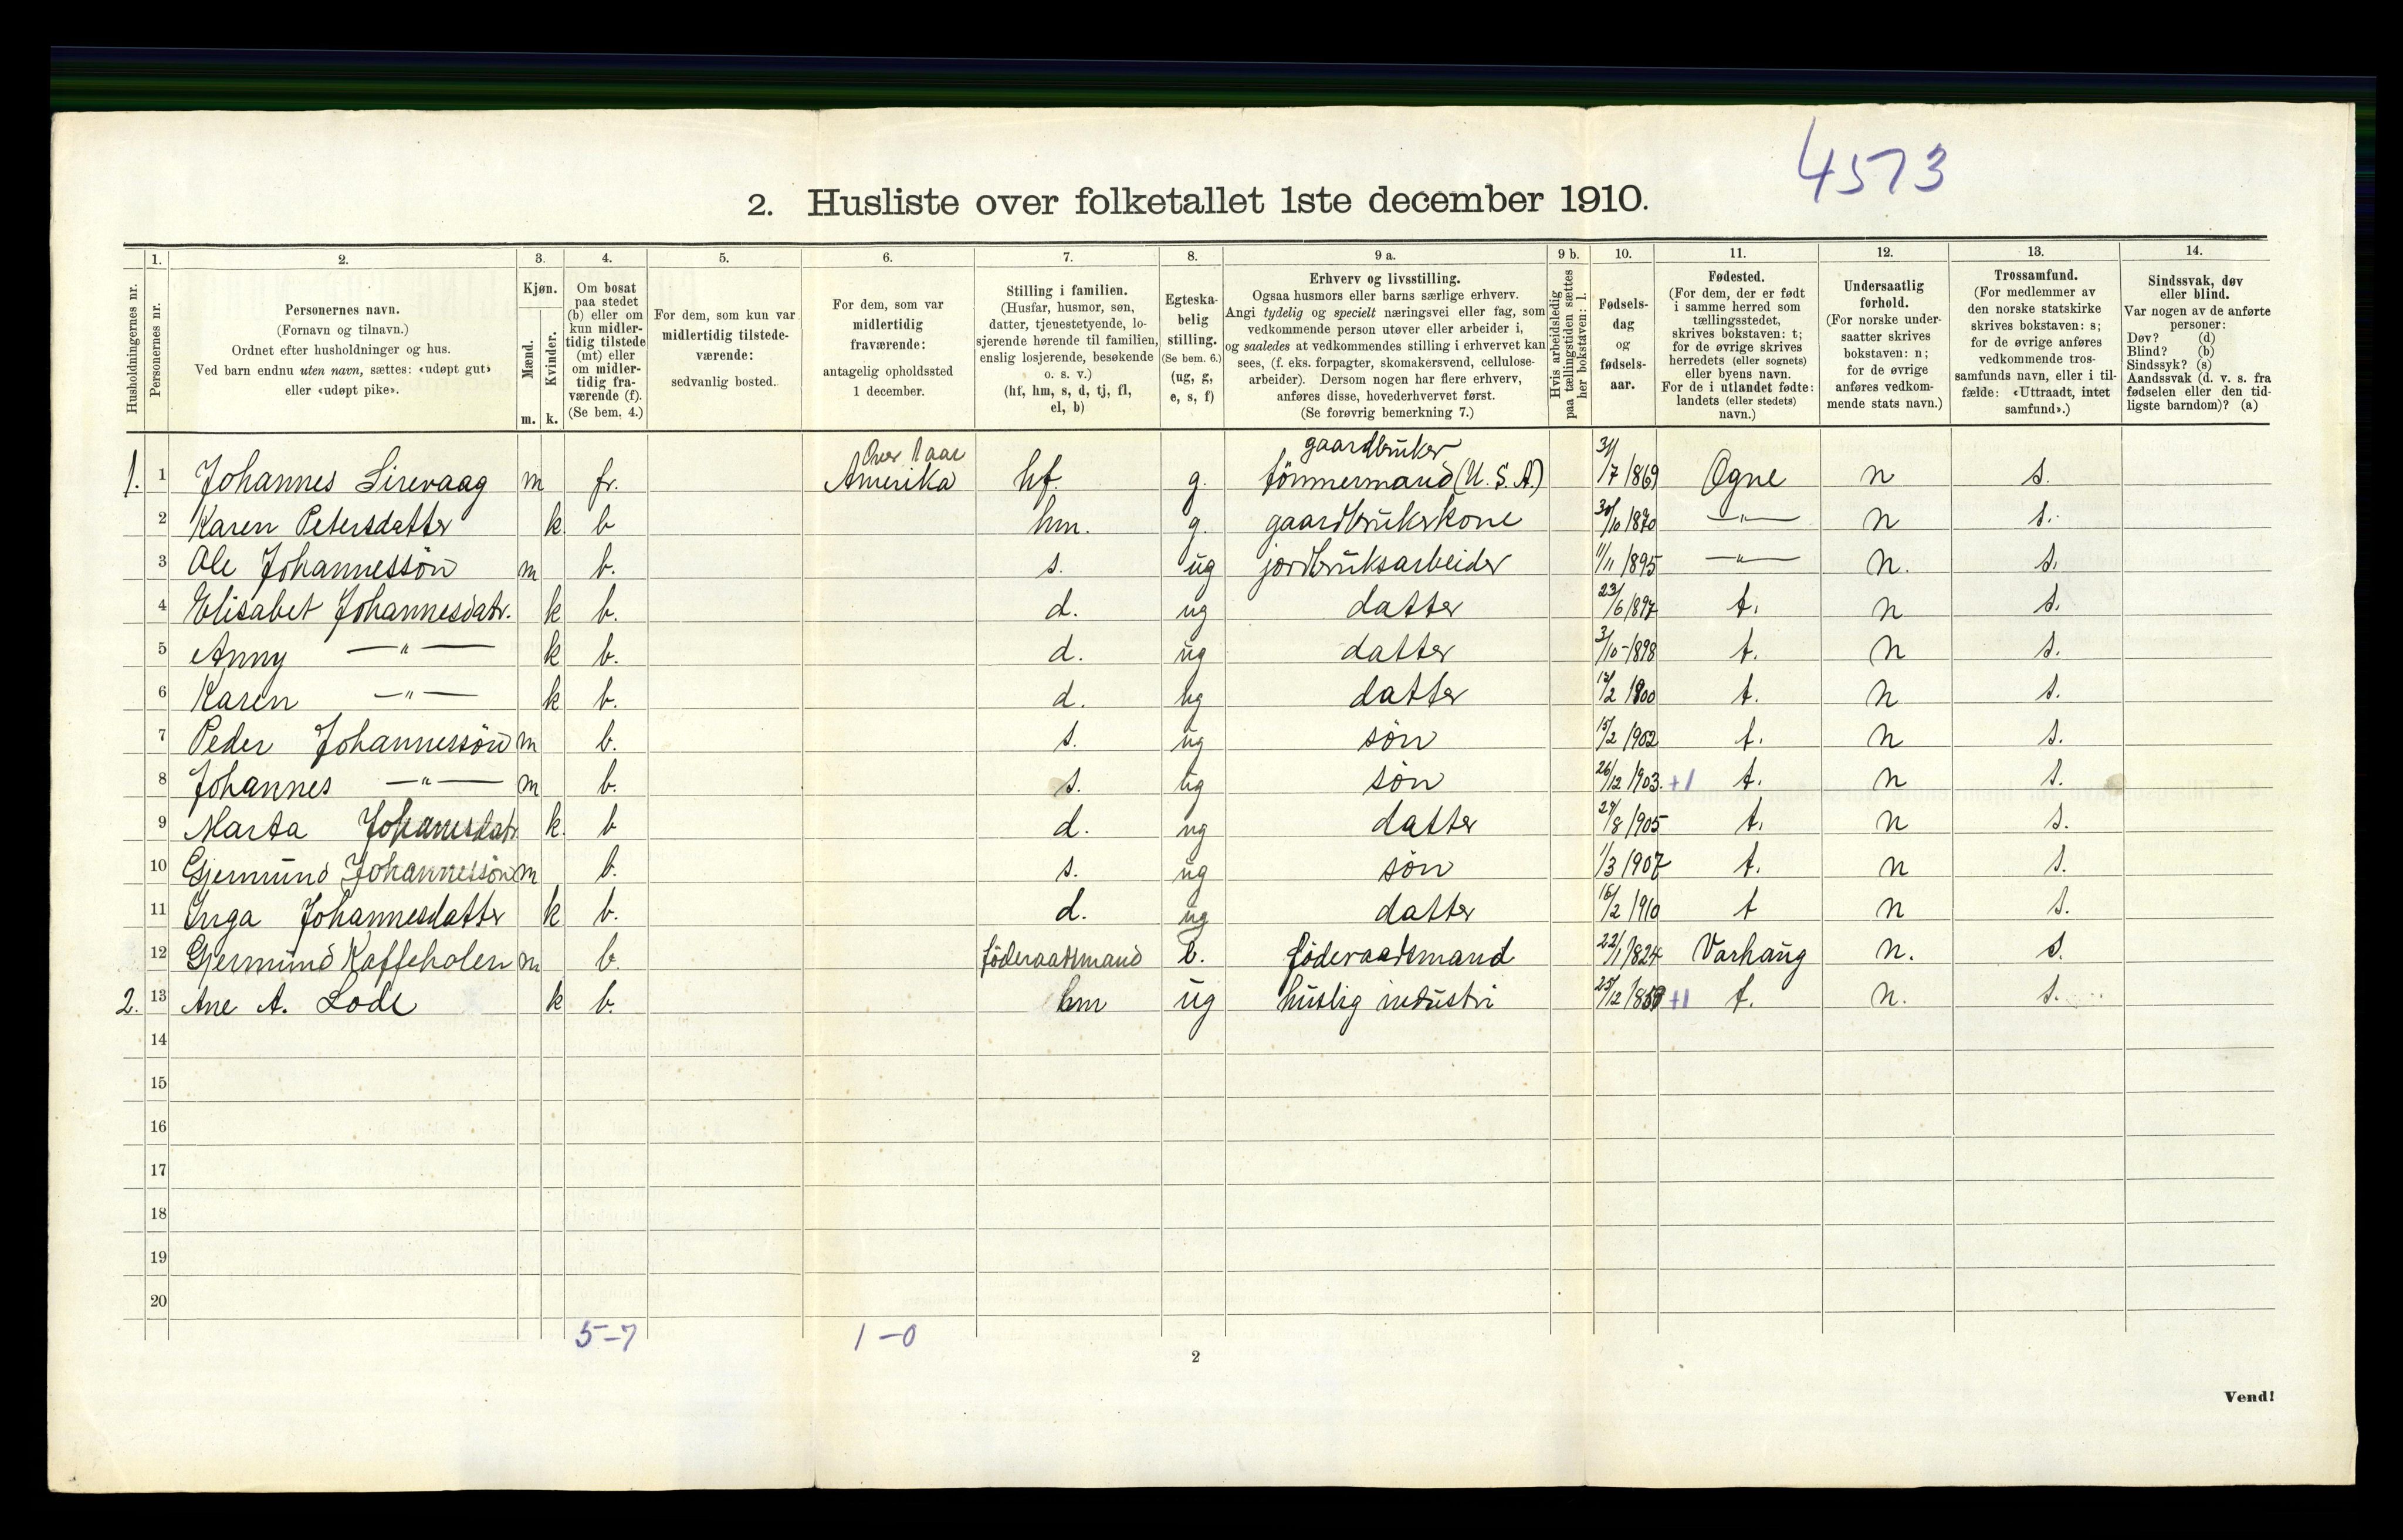 4573
2. Husliste over folketallet 1ste december 1910.
Husholdningernes nr.
1. Personernes nr.
2. Personernes navn.
(Fornavn og tilnavn.)
Ordnet efter husholdninger og hus.
Ved barn endnu uten navn, sættes: «udøpt gut»
eller «udøpt pike».
3. Kjøn.
Mænd. m.
Kvinder. k.
4. Om bosat
paa stedet
(b) eller om
kun midler-
tidig tilstede
(mt) eller
om midler-
tidig fra-
værende (f).
(Se bem. 4.)
5. For dem, som kun var
midlertidig tilstede-
værende:
sedvanlig bosted.
6. For dem, som var
midlertidig
fraværende:
antagelig opholdssted
1 december.
7. Stilling i familien.
(Husfar, husmor, søn,
datter, tjenestetyende, lo-
sjerende hørende til familien,
enslig losjerende, besøkende
o. s. v.)
(hf, hm, s, d, tj, fl,
el, b)
8. Egteska-
belig
stilling.
(Se bem. 6.)
(ug, g,
e, s, f)
9 a. Erhverv og livsstilling.
Ogsaa husmors eller barns særlige erhverv.
Angi tydelig og specielt næringsvei eller fag, som
vedkommende person utøver eller arbeider i,
og saaledes at vedkommendes stilling i erhvervet kan
sees, (f. eks. forpagter, skomakersvend, cellulose-
arbeider). Dersom nogen har flere erhverv,
anføres disse, hovederhvervet først.
(Se forøvrig bemerkning 7.)
9 b. Hvis arbeidsledig
paa tællingstiden sættes
her bokstaven: l.
10. Fødsels-
dag
og
fødsels-
aar.
11. Fødested.
(For dem, der er født
i samme herred som
tællingsstedet,
skrives bokstaven: t;
for de øvrige skrives
herredets (eller sognets)
eller byens navn.
For de i utlandet fødte:
landets (eller stedets)
navn.)
12. Undersaatlig
forhold.
(For norske under-
saatter skrives
bokstaven: n;
for de øvrige
anføres vedkom-
mende stats navn.)
13. Trossamfund.
(For medlemmer av
den norske statskirke
skrives bokstaven: s;
for de øvrige anføres
vedkommende tros-
samfunds navn, eller i til-
fælde: «Uttraadt, intet
samfund».)
14. Sindssvak, døv
eller blind.
Var nogen av de anførte
personer:
Døv? (d)
Blind? (b)
Sindssyk? (s)
Aandssvak (d. v. s. fra
fødselen eller den tid-
ligste barndom)? (a)
Over 1 aar gaardbruker
1. 1 Johannes Sirevaag m fr. Amerika hf. g. tömmermand (U.S.A.) 31/7 1869 Ogne n s.
2 Karen Petersdatter k b hm. g. gaardbrukskone 30/10 1870 —"— n s.
3 Ole Johannessön m b. s. ug jordbruksarbeider 11/11 1895 —"— n. s.
4 Elisabet Johannesdatr. k b. d. ug datter 23/6 1897 t. n s.
5 Anny —"— k b. d. ug datter 3/10 1898 t. n s.
6 Karen —"— k b. d. ug datter 12/2 1900 t. n s.
7 Peder Johannessön m b. s. ug sön 15/2 1902 t. n s.
8 Johannes —"— m b. s. ug sön 26/12 1903. +1 t. n s.
9 Marta Johanesdatr k. b d. ug datter 29/8 1905 t. n s.
10 Gjermund Johannessön m b. s. ug sön 1/3 1907 t. n s.
11 Inga Johannesdatter k b. d. ug datter 16/2 1910 t n s.
12 Gjermund Kaffeholen m b. föderaadsmand e. föderaadsmand 22/1 1824 Varhaug n. s.
2. 13 Ane A. Lode k b. hm ug huslig industri 25/12 +1 t. n. s.
14
15
16
17
18
19
20
5-7 1-0
2
Vend!